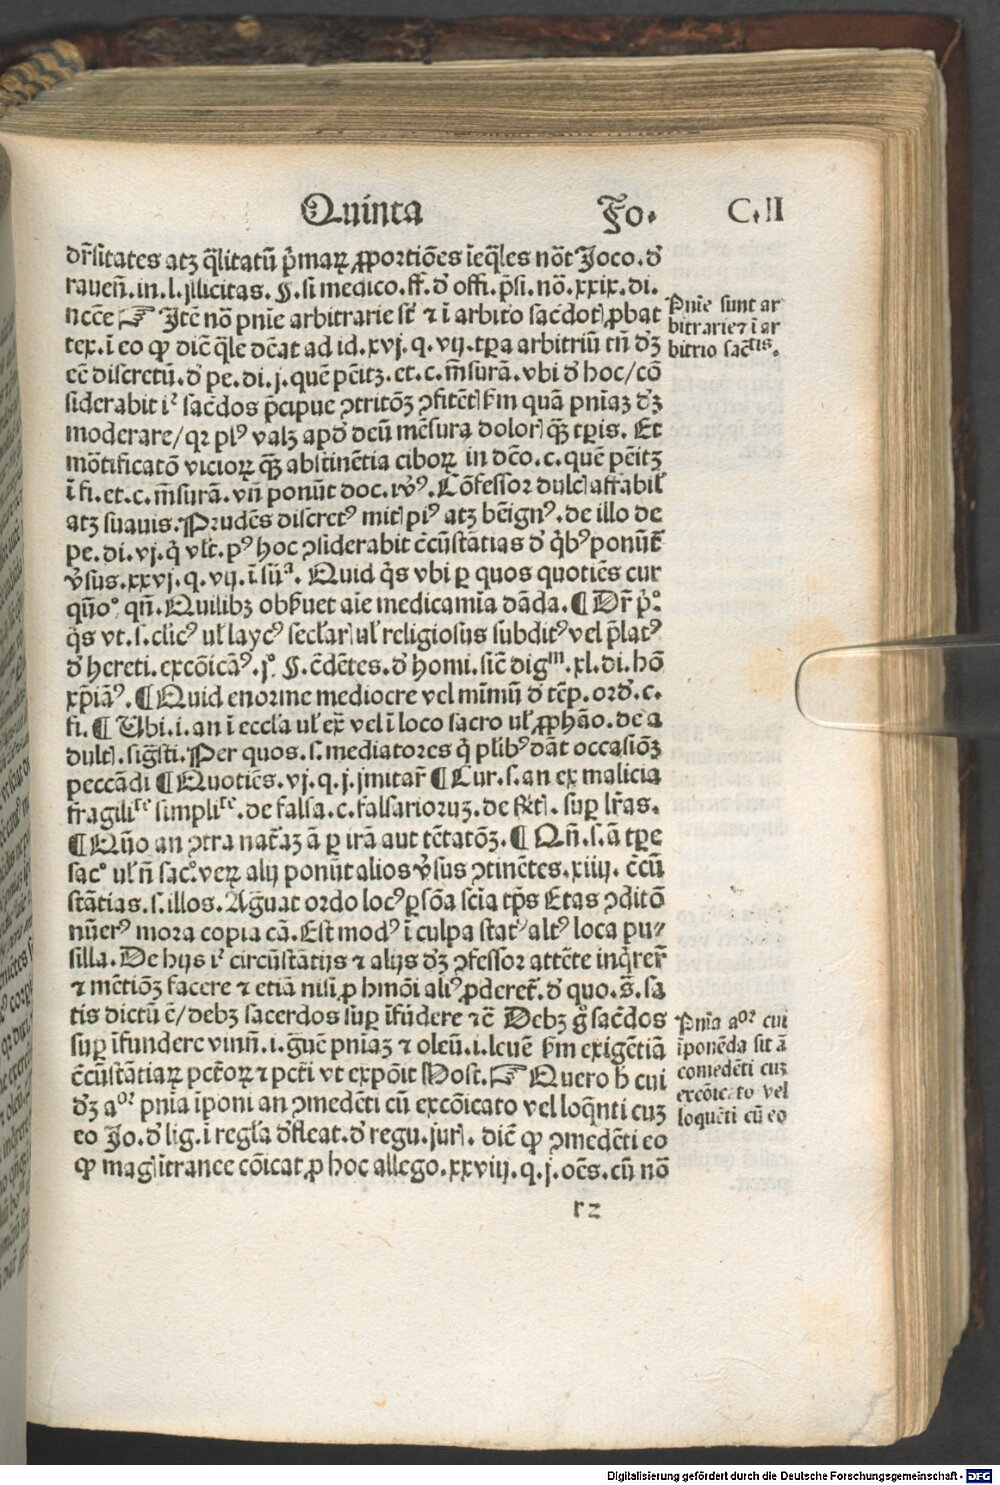 Quinta Fo. C.II
dr̄sitates atꝫ q̄litatū p̄maꝝ ꝓportiōes īeq̄les nōt Joco. đ
raueñ. in. l. illicitas. §. si medico. ff. đ offi. p̄si. nō. xxix. di.
ncēe ☞ Itē nō pn̄ie arbitrarie st̄ ⁊ ī arbit̓o sac̄dotꝭ ꝓbat
tex. ī eo ꝙ dic̄ q̄le dēat ad id. xvj. q. vij. tp̄a arbitriū tn̄ dꝫ
eē discretū. đ pe. di. j. quē pēitꝫ. et. c. m̄surā. vbi đ hoc/cō
siderabit iᵗ sac̄dos p̄cipue ꝯtritōꝫ ꝯfitētꝭ fm quā pn̄iaꝫ dꝫ
moderare/qꝛ plꝰ valꝫ apđ deū mēsura dolorꝭ qꝫ̄ tp̄is. Et
mōtificatō vicioꝝ qꝫ̄ abstinētia ciboꝝ in dc̄o. c. quē pēitꝫ
ī fi. et. c. m̄surā. vn̄ ponūt doc. Cōfessor dulcꝭ affabil̓
atꝫ suauis. Prudēs discretꝰ mitꝭ piꝰ atꝫ bēignꝰ. de illo de
pe. di. vj. q̓ vl̓t. pꝰ hoc ꝯsiderabit c̄cūstātias đ q̓bꝰ ponūt̄
v̓sus. xxvj. q. vij. ī sūᵃ. Quid q̓s vbi ꝑ quos quotiēs cur
qūoᵒ qn̄. Quilibꝫ obẜuet aīe medicamīa dāda. ¶ Dr̄ p̓ᵒ
q̓s vt. s. clic̓ꝰ ul̓ laycꝰ secl̓arꝭ ul̓ religiosus subditꝰ vel p̄latꝰ
đ hereti. excōicāꝰ. jᵒ §. c̄dētes. đ homi. sic̄ digᵐ. xl. di. hō
xp̄iāꝰ. ¶ Quid enorme mediocre vel mīmū đ tēp. orđ. c.
fi. ¶ Ubi. i. an ī eccl̓a ul̓ ex̄ vel ī loco sacro ul̓ ꝓphāo. de a
dultꝭ. sig̓sti. Per quos. s. mediatores q̓ pl̓ibꝰ dāt occasiōꝫ
peccādi ¶ Quotiēs. vj. q. j. jmitar̄ ¶ Cur. s. an ex malicia
fragiliʳᵉ simpliʳᵉ. de falsa. c. falsarioruꝫ. de sētꝭ. suꝑ lr̄as.
¶ Qūo an ꝯtra nat̓aꝫ ā ꝑ irā aut tētatōꝫ. ¶ Qn̄. s. ā tp̄e
sacᵒ ul̓ n̄ sacᵒ. veꝝ alij ponūt alios v̓sus ꝯtinētes. xiiij. c̄cū
stātias. s. illos. Ag̓uat ordo locꝰ ꝑsōa scīa tp̄s Etas ꝯditō
nūerꝰ mora copia cā. Est modꝰ ī culpa statꝰ altꝰ loca pu⸗
silla. De hijs iᵗ circūstātijs ⁊ alijs dꝫ ꝯfessor attēte inq̓rer̄
⁊ mētiōꝫ facere ⁊ etiā nisi ꝓ hmōi aliꝰ ꝓderet̄. đ quo. s̄. sa
tis dictū ē/debꝫ sacerdos suꝑ īfūdere ⁊c̄ Debꝫ g̓ sac̄dos
suꝑ īfundere vinū. i. g̓uē pn̄iaꝫ ⁊ oleū. i. leuē fm exigētiā
c̄cūstātiaꝝ pctōꝝ ⁊ pcti vt expōit Host. ☞ Quero h̄ cui
dꝫ aᵒʳ pn̄ia īponi an ꝯmedēti cū excōicato vel loq̓nti cuꝫ
eo Jo. đ lig. ī regl̓a đficat. đ regu. jurꝭ. dic̄ ꝙ ꝯmedēti eo
ꝙ magꝭ itrance cōicat ꝓ hoc allego. xxviij. q. j. oēs. cū nō
Pn̄ie sunt ar
bitrarie ⁊ ī ar
bitrio sac̄tis.
Pn̄ia aᵒʳ cui
īponēda sit ā
comedēti cuꝫ
excōicato vel
loquēti cū eo
r 2
Digitalisierung gefördert durch die Deutsche Forschungsgemeinschaft - DFG